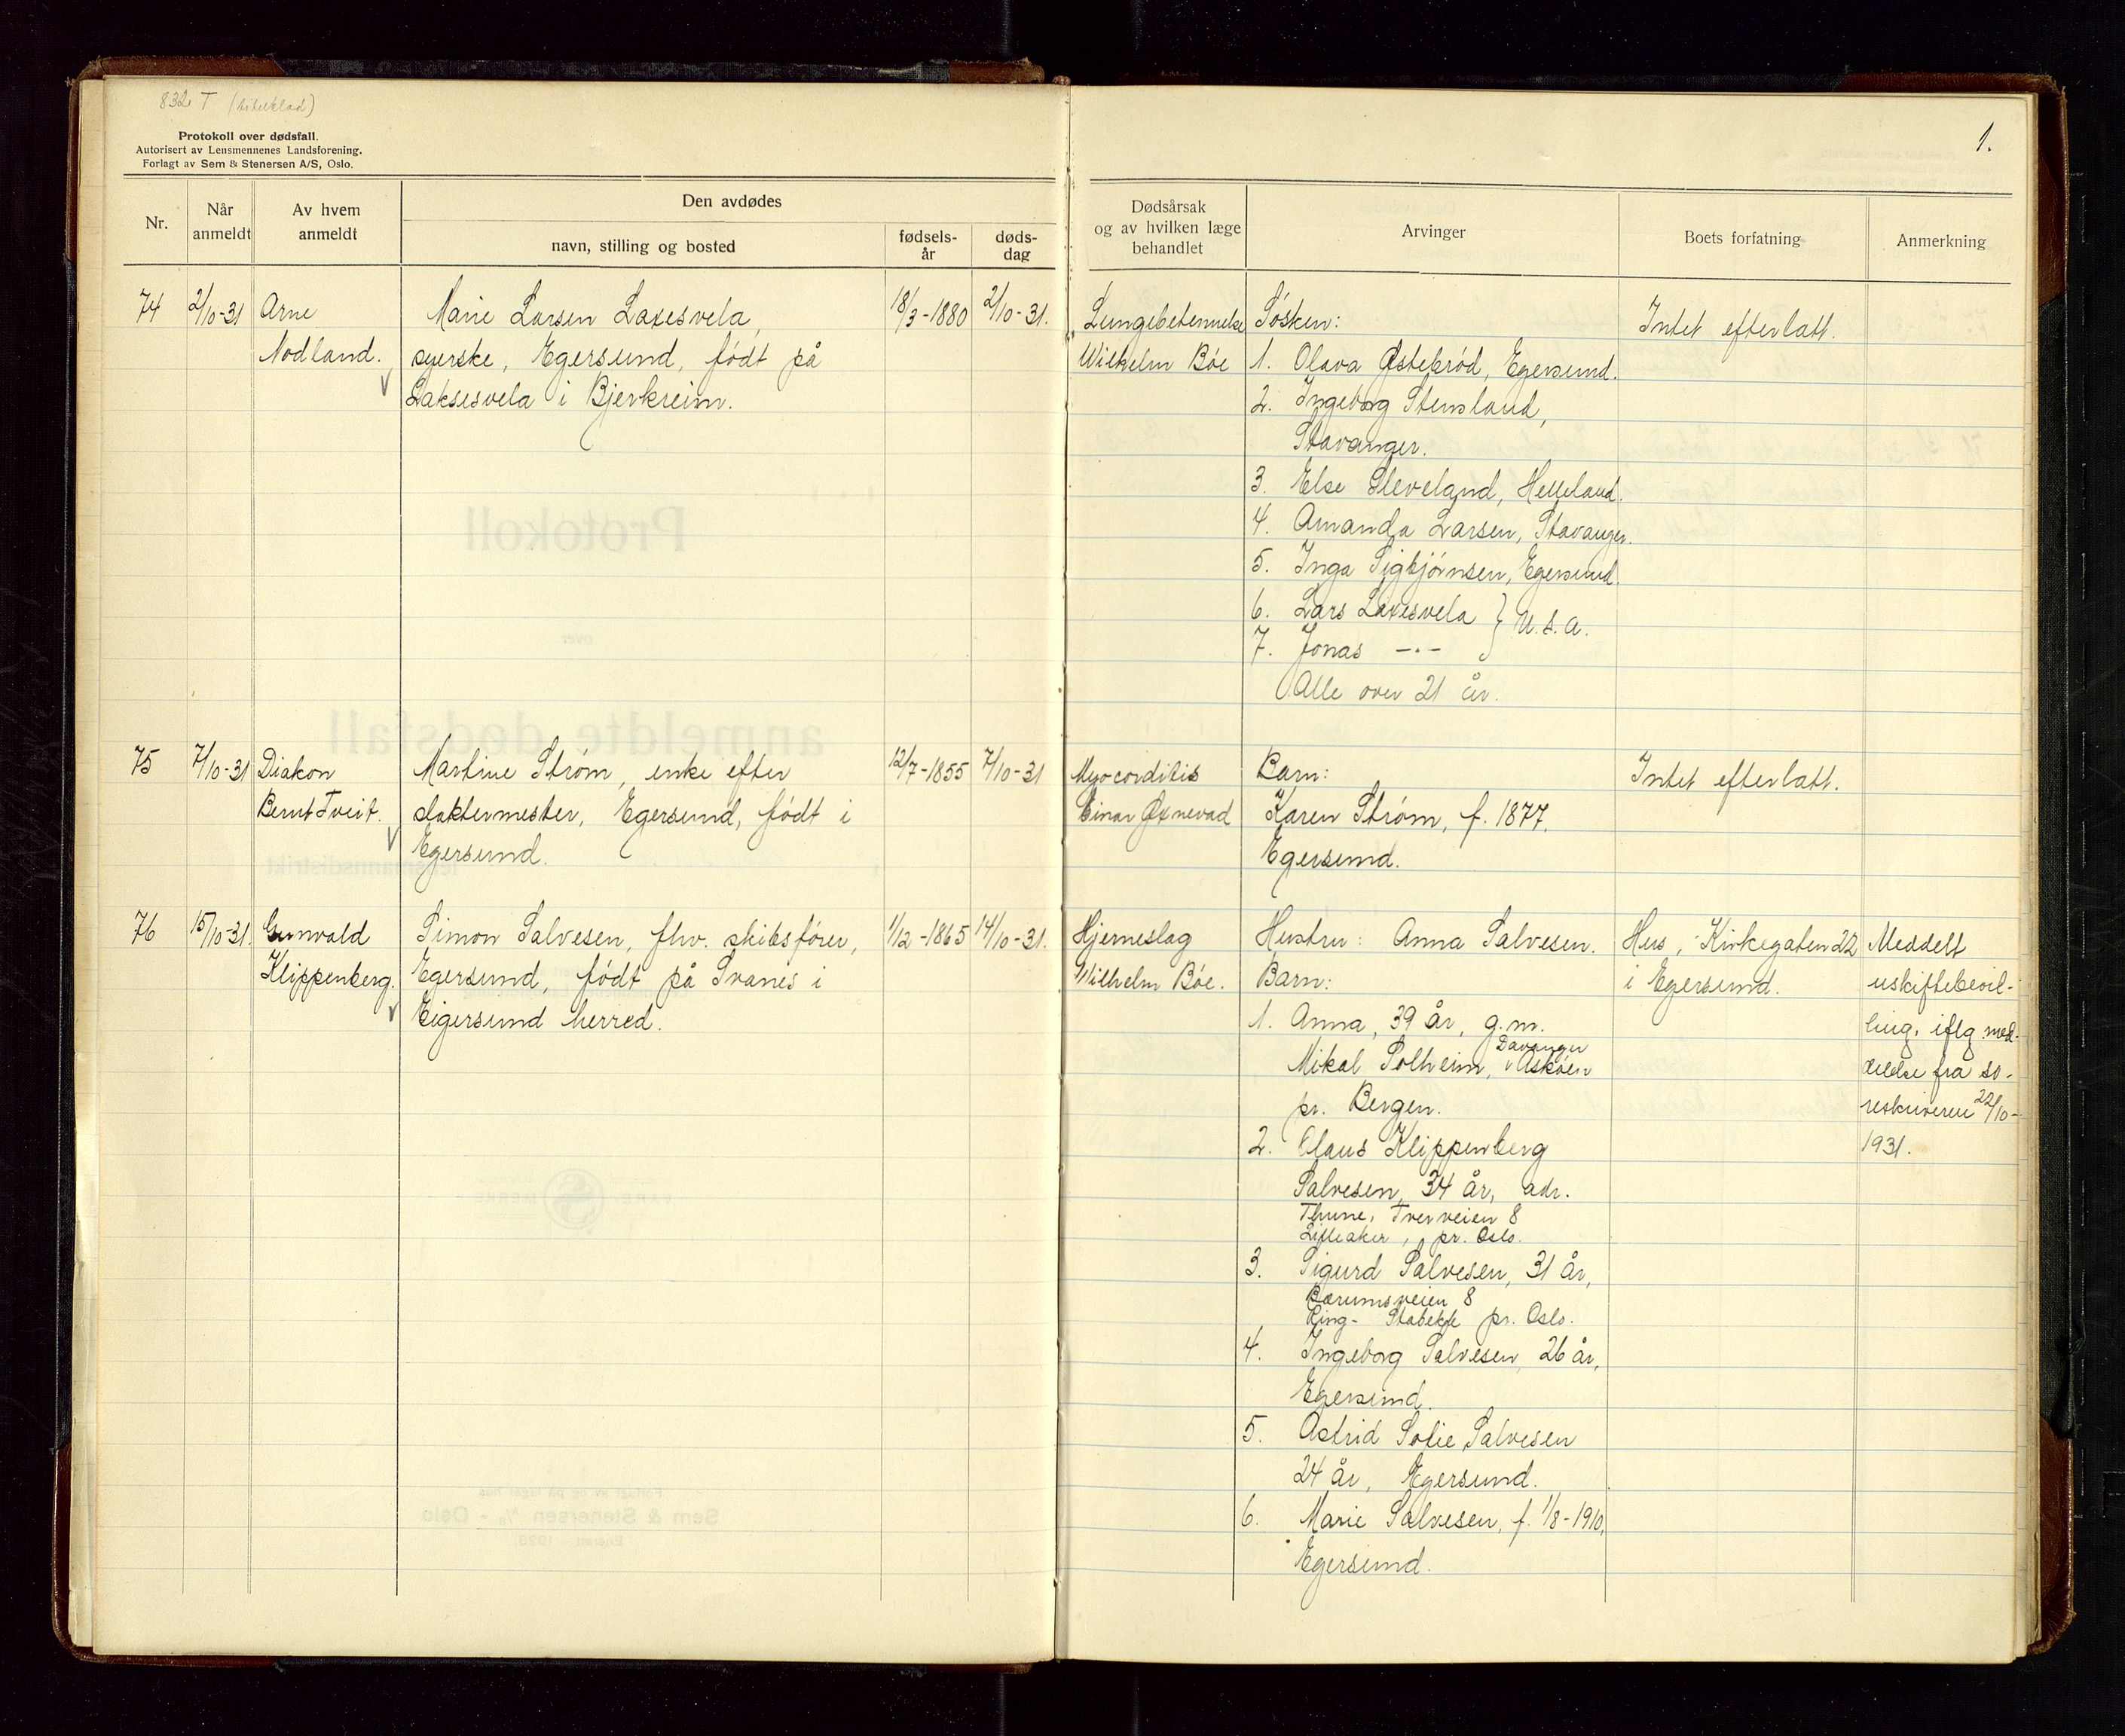 832 T (titelblad)
Protokoll over dødsfall.
Autorisert av Lensmennenes Landsforening.
Forlagt av Sem & Stenersen A/S, Oslo.
1.
Nr.
Når anmeldt
Av hvem anmeldt
Den avdødes
navn, stilling og bosted
fødsels-år
døds-dag
Dødsårsak og av hvilken læge behandlet
Arvinger
Boets forfatning
Anmerkning
74 2/10-31 Arne Marie Larsen Laxesvela, 18/3-1880 2/10-31.
Nodland. syerske, Egersund, født på
Laksesvela i Bjerkreim.
Lungebetennelse Søsken: Intet efterlatt.
Wilhelm Bøe 1. Olava Østebrød, Egersund.
2. Ingeborg Stensland,
Stavanger.
3. Else Sleveland, Helleland.
4. Amanda Larsen, Stavanger.
5. Inga Sigbjørnsen, Egersund.
6. Lars Laxesvela } U.S.A.
7. Jonas -·-
Alle over 21 år.
75 7/10-31 Diakon Martine Strøm, enke efter 12/7-1855 7/10-31
Bernt Tveit. slaktermester, Egersund, født i
Egersund.
Myocorditis Barn: Intet efterlatt.
Einar Øxnevad Karen Strøm, f. 1877,
Egersund.
76 15/10-31. Gunvald Simon Salvesen, fhv. skibsfører, 1/12-1865 14/10-31.
Klippenberg. Egersund, født på Svanes i
Eigersund herred.
Hjerneslag Hustru: Anna Salvesen. Hus, Kirkegaten 22 Meddelt
Wilhelm Bøe. Barn: i Egersund. uskiftebevil-
1. Anna, 39 år, g.m. ling, iflg. med-
Davanger
Mikal Solheim, Askøen delelse fra so-
pr. Bergen. reskriveren 22/10-
2. Claus Klippenberg 1931.
Salvesen, 34 år, adr.
Thune, Tverveien 8
Lilleaker, pr. Oslo.
3. Sigurd Salvesen, 31 år,
Bærumsveien 8
Ring- Stabekk pr. Oslo.
4. Ingeborg Salvesen, 26 år,
Egersund.
5. Astrid Sofie Salvesen
24 år, Egersund.
6. Marie Salvesen, f. 1/8-1910,
Egersund.